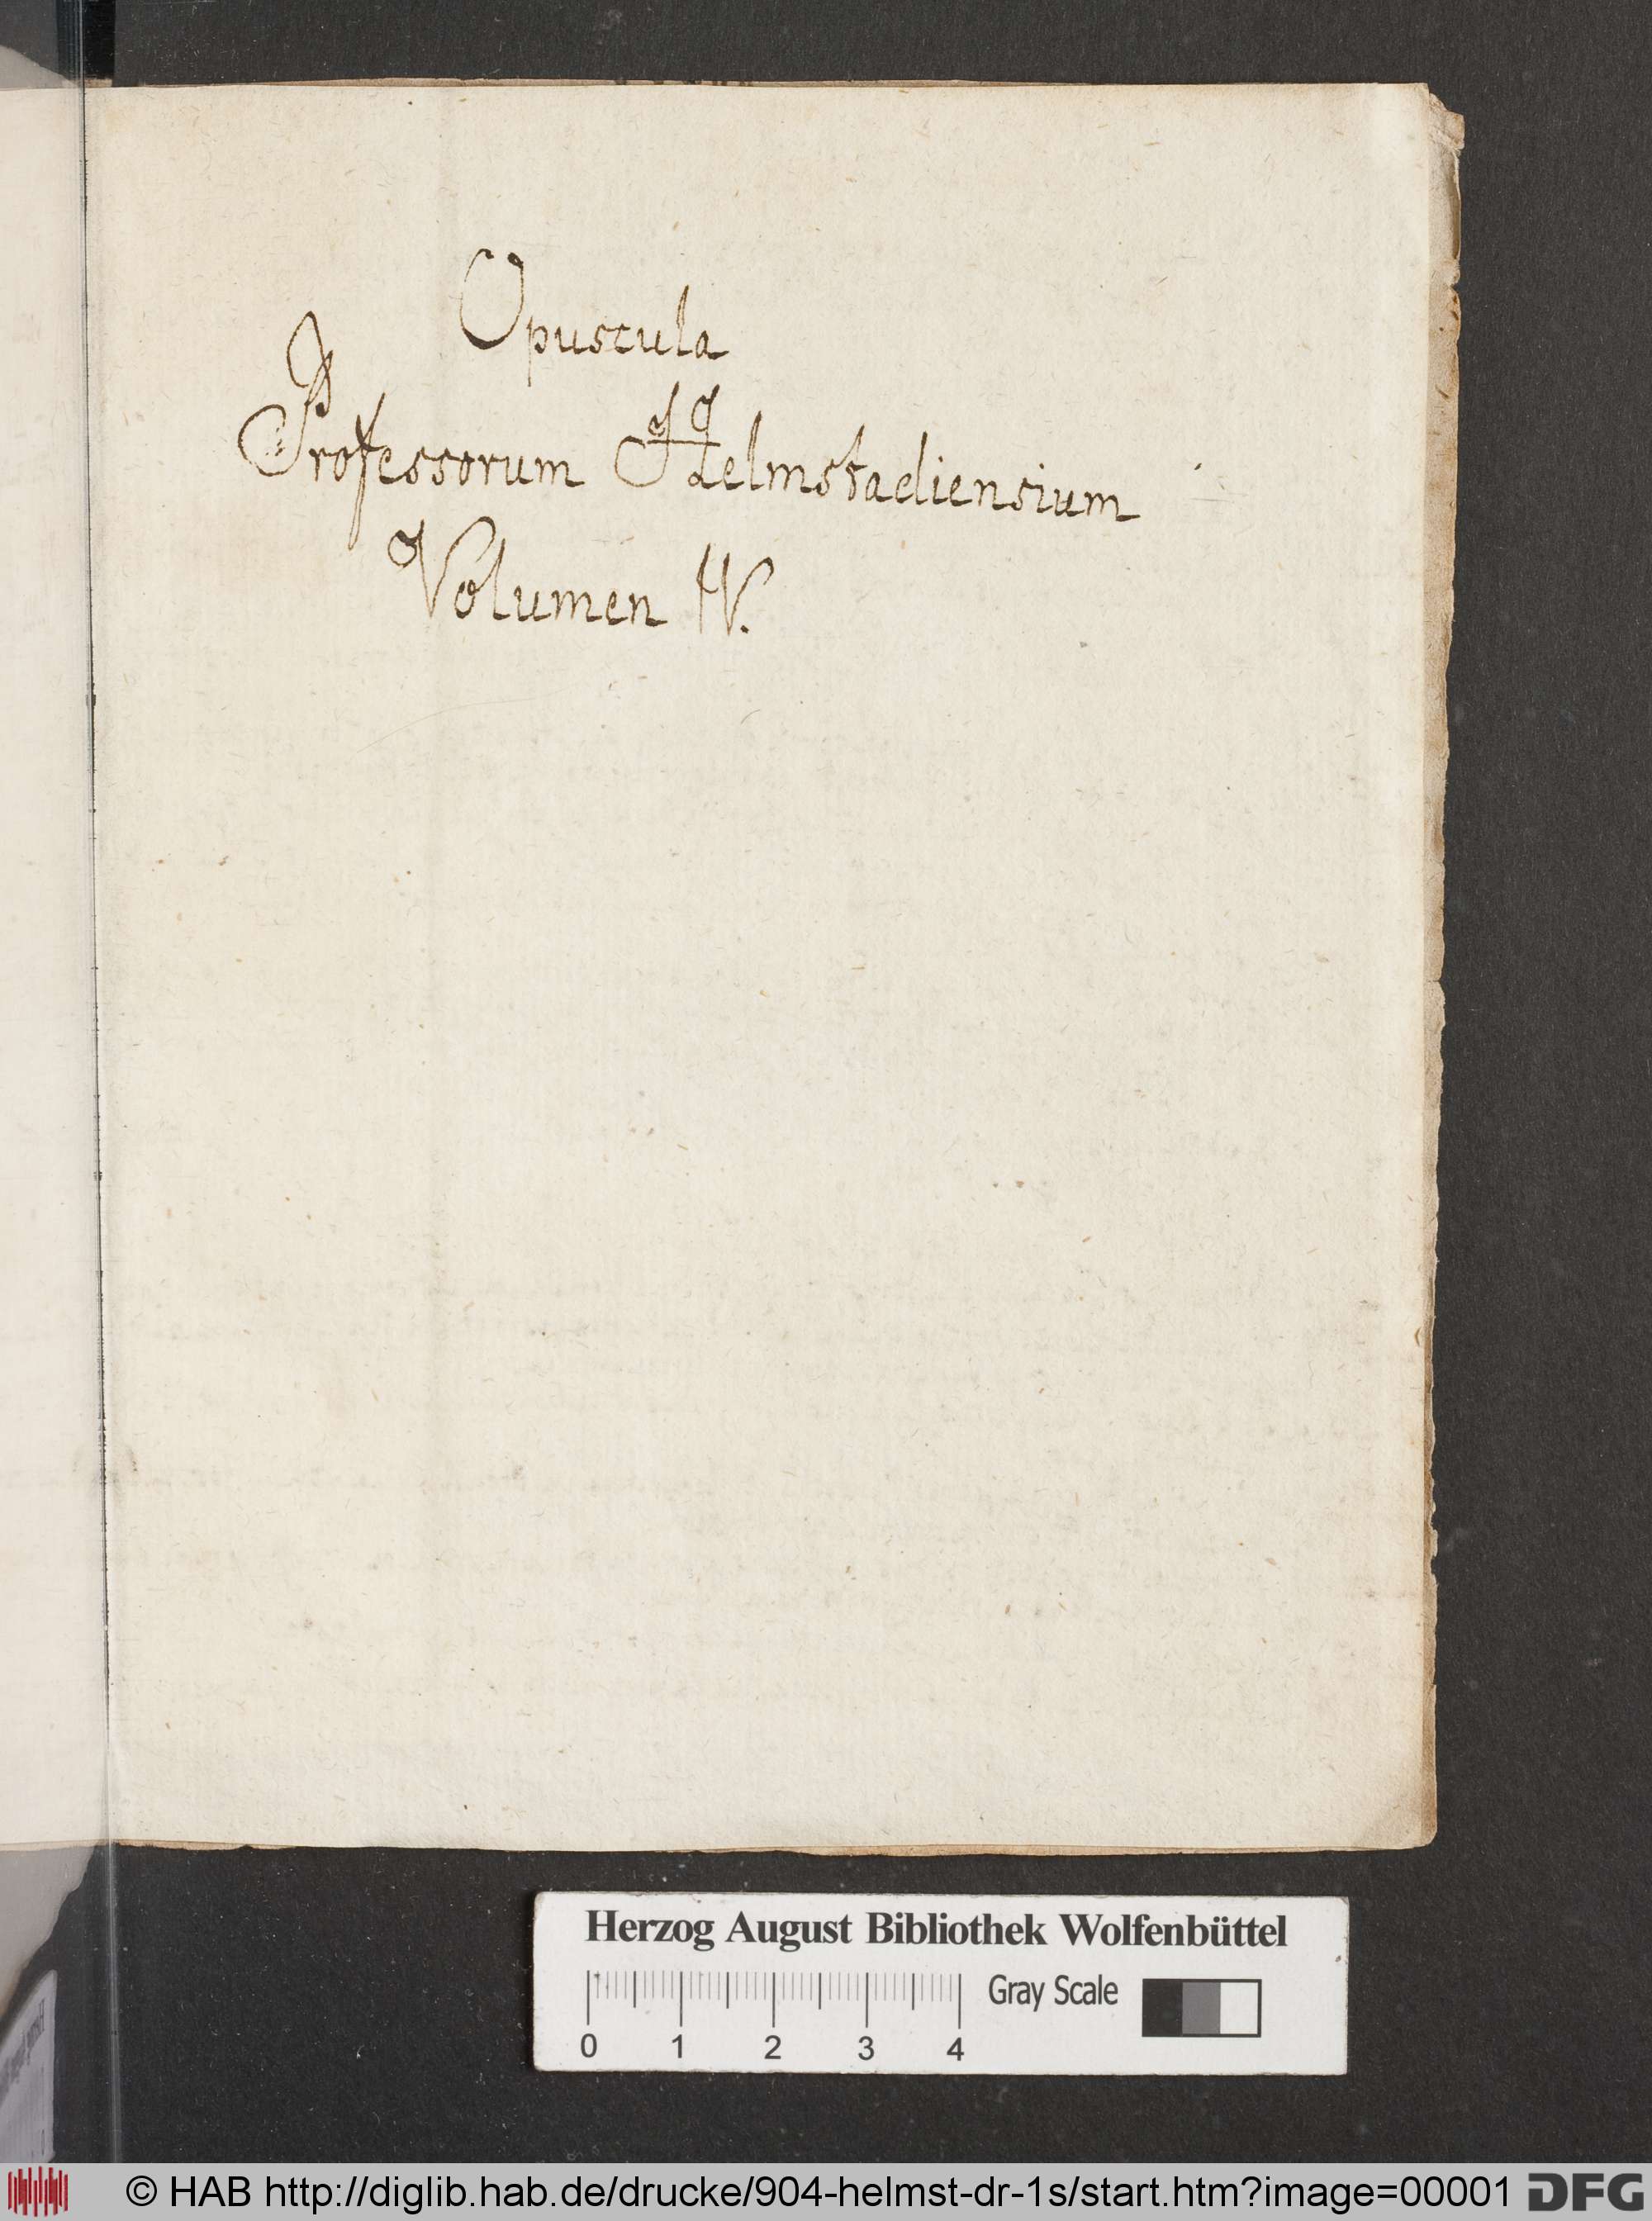 Opuscula
Professorum Helmstadiensium
Volumen IV.
Herzog August Bibliothek Wolfenbüttel
Gray Scale
0 1 2 3 4
© HAB http://diglib.hab.de/drucke/904-helmst-dr-1s/start.htm?image=00001
DFG